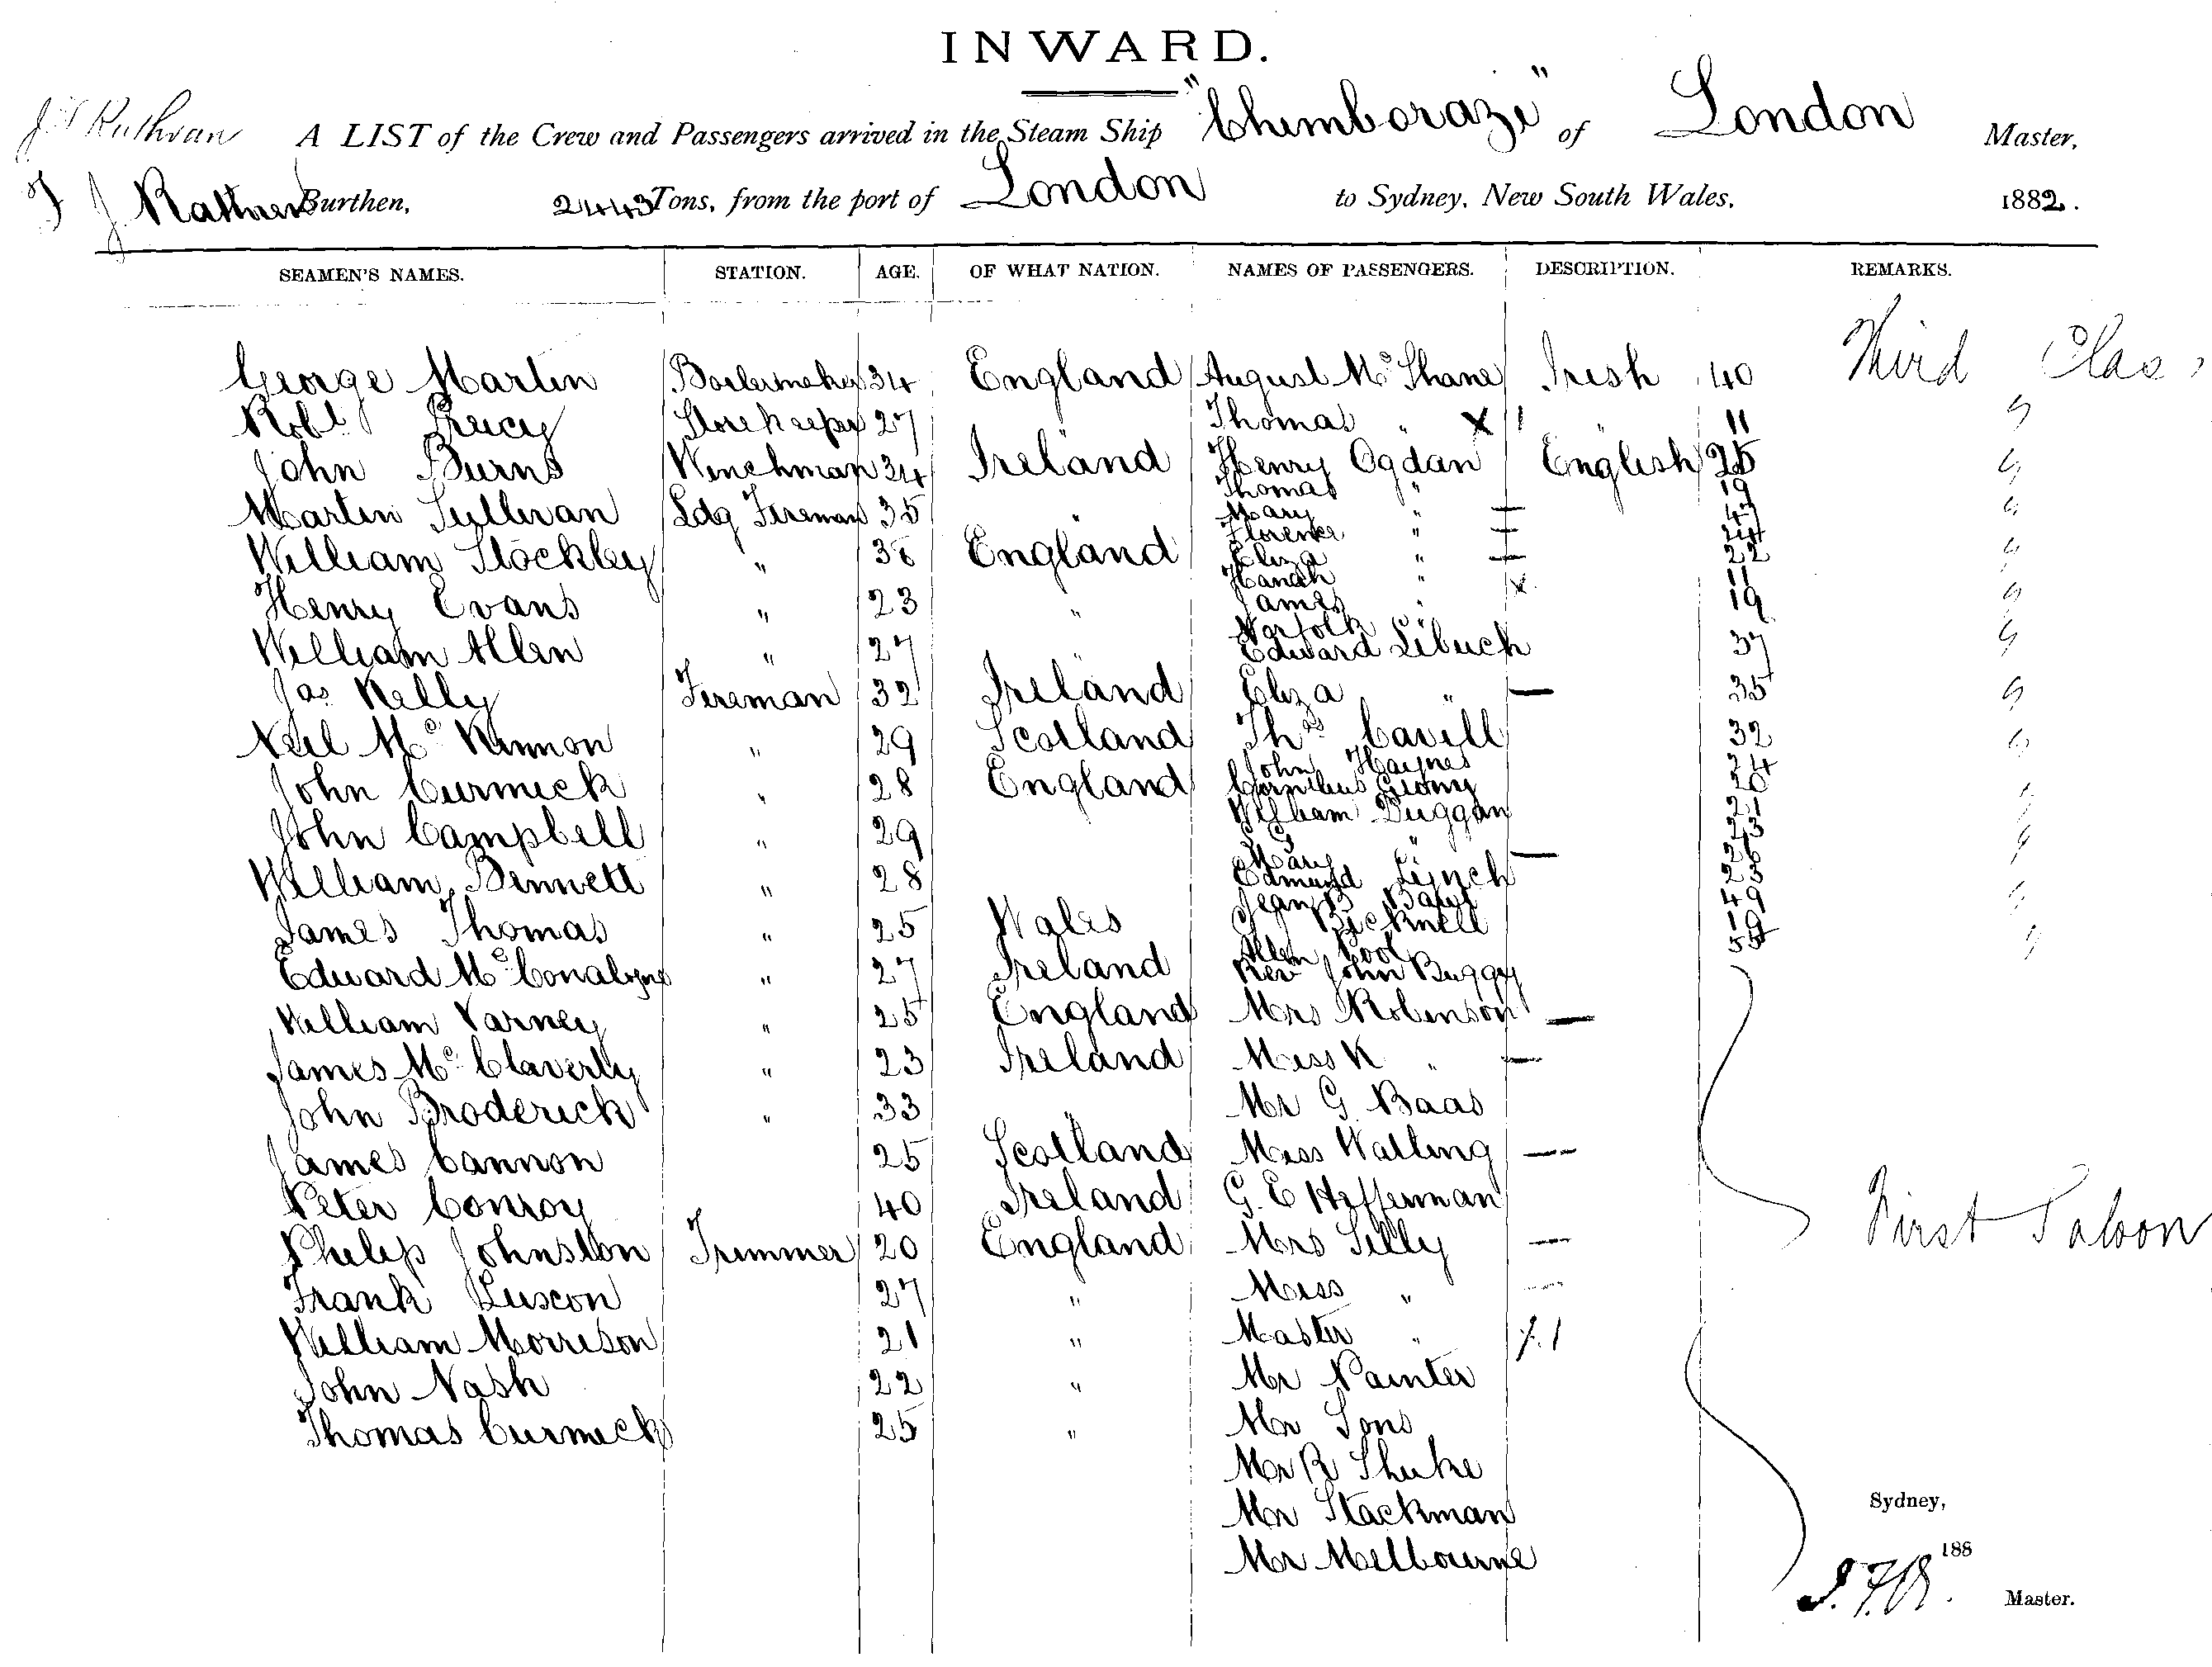 INWARD.
J T Ruthvan A LIST of the Crew and Passengers arrived in the Steam Ship "Chimborazo" of London Master,
T J Burthen, 2443 Tons, from the port of London to Sydney, New South Wales, 1882.
SEAMEN'S NAMES. STATION. AGE. OF WHAT NATION. NAMES OF PASSENGERS. DESCRIPTION. REMARKS.
George Martin Boilermaker 34 England August McShane Irish 40 Third Clas
Robt 27 Thomas " X 1 " 11 "
Storekeeper
John Burns Winchman 34 Ireland Henry Ogdan English 25 "
Thomas " 19
Martin Sullivan Ldg Fireman 35 Mary " — "
Florence " —
William Stockley " 38 England Eliza " — 22 "
Hanah " x 11
Henry Evans " 23 " James " 19 "
Norfolk "
William Allen " 27 " Edward Libuch 37 "
Jas Kelly Fireman 32 Ireland Eliza " — 35 "
Neil McKinnon " 29 Scotland Thos Cavill 32 "
John Haynes 24
John Curmick " 28 England Cornelius "
William Duggan
John Campbell " 29 "
Mary " — 26
William Bennett " 28 Edmund Lynch 25 "
Jean B 49
James Thomas " 25 Wales Bicknell 19 "
Allen Pool
Edward McConalogue " 27 Ireland Rev John Buggy
William Varney " 25 England Mrs Robinson —
James McClaverty " 23 Ireland Miss K " —
John Broderick " 33 Mr G. Baas
James Cannon 25 Scotland Miss Walling —
Peter Conroy 40 Ireland G. E Heffernan First Saloon
Philip Johnston Trimmer 20 England Mrs Silly —
Frank Luscon 27 " Miss " —
William Morrison 21 " Master " 1
John Nash 22 " Mr Painter
Thomas Curmick 25 " Mr Sons
Mr R Shuke
Mr Stackman
Sydney,
Mr Melbourne
188
Master.